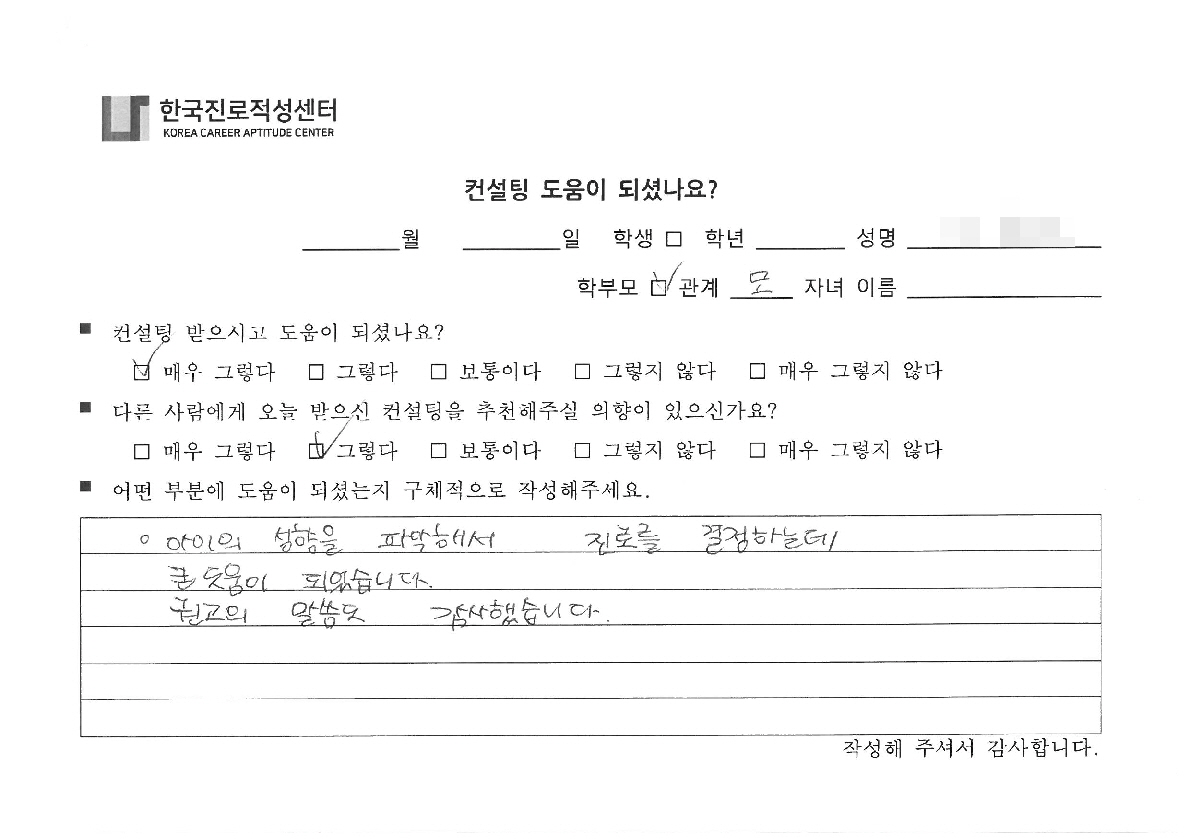 한국진로적성센터
KOREA CAREER APTITUDE CENTER
컨설팅 도움이 되셨나요?
______월 ______일 학생 □ 학년 ______ 성명 ______
학부모 ☑ 관계 모 자녀 이름 ______
■ 컨설팅 받으시고 도움이 되셨나요?
☑ 매우 그렇다 □ 그렇다 □ 보통이다 □ 그렇지 않다 □ 매우 그렇지 않다
■ 다른 사람에게 오늘 받으신 컨설팅을 추천해주실 의향이 있으신가요?
□ 매우 그렇다 ☑ 그렇다 □ 보통이다 □ 그렇지 않다 □ 매우 그렇지 않다
■ 어떤 부분에 도움이 되셨는지 구체적으로 작성해주세요.
○ 아이의 성향을 파악해서 진로를 결정하는데
큰 도움이 되었습니다.
권고의 말씀도 감사했습니다.
작성해 주셔서 감사합니다.